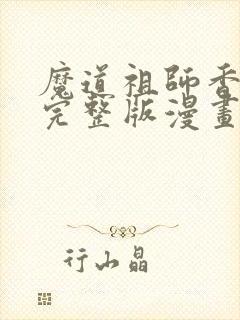 魔道祖師香
完整版漫畫
行山晶